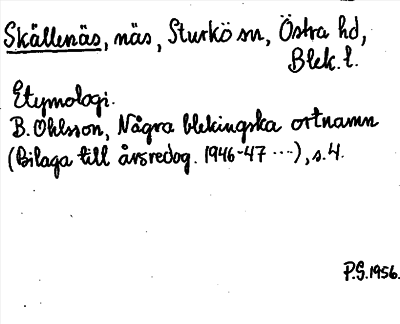 Skällenäs, näs, Sturkö sn, Östra hd,
Blek. l.
Etymologi.
B. Ohlsson, Några blekingska ortnamn
(Bilaga till årsredog. 1946-47 ...), s. 4.
P.G. 1956.